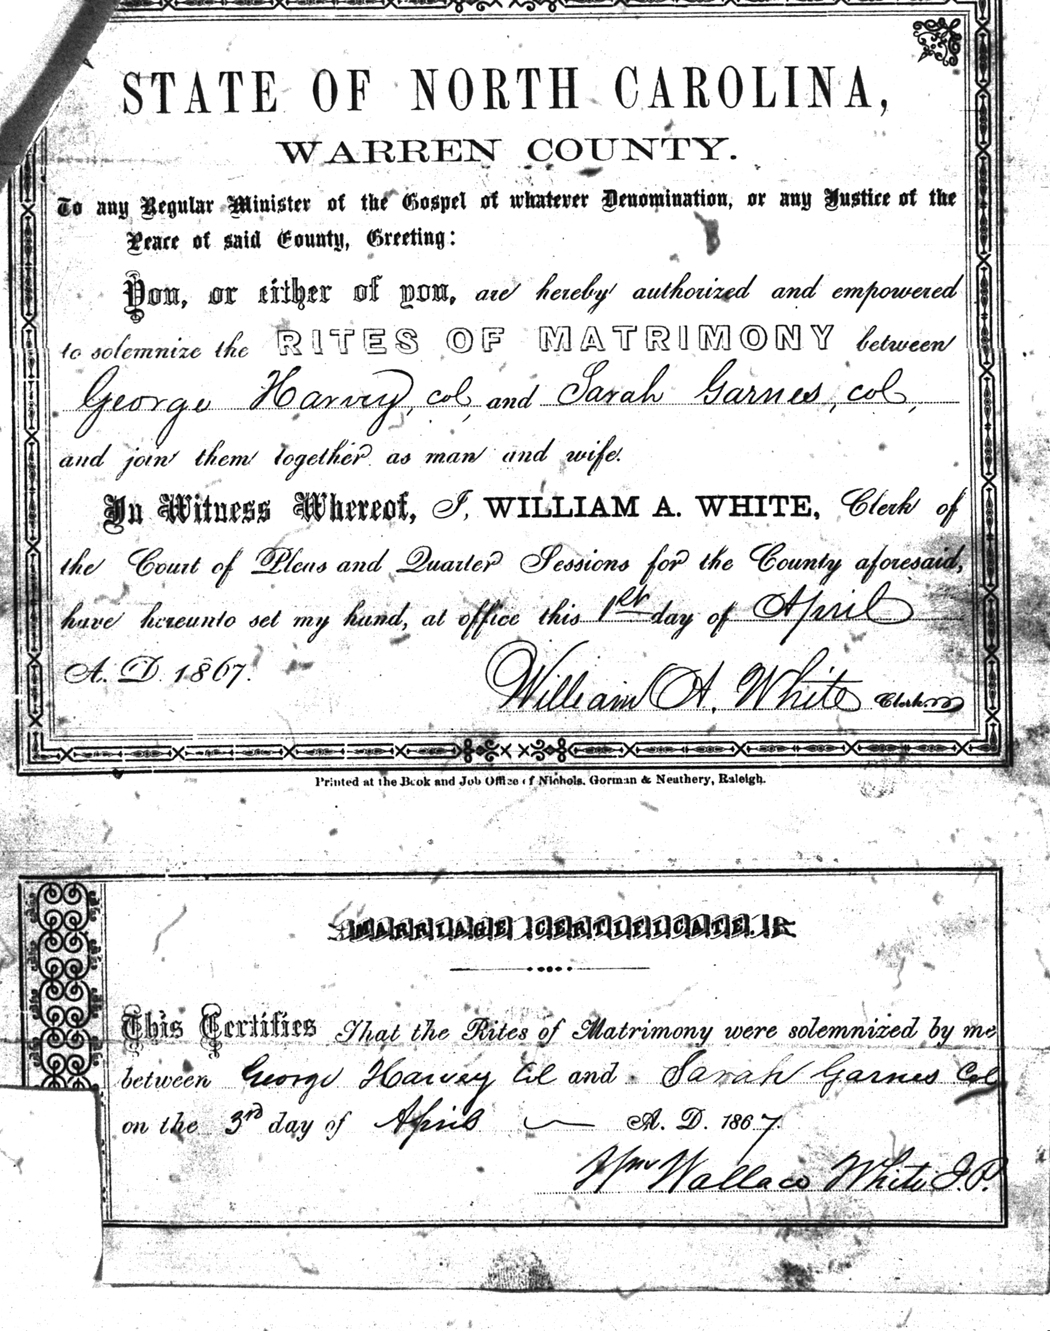 STATE OF NORTH CAROLINA,
WARREN COUNTY.
To any Regular Minister of the Gospel of whatever Denomination, or any Justice of the
Peace of said County, Greeting:
You, or either of you, are hereby authorized and empowered
to solemnize the RITES OF MATRIMONY between
George Harvey, col, and Sarah Garnes, col,
and join them together as man and wife.
In Witness Whereof, I, WILLIAM A. WHITE, Clerk of
the Court of Pleas and Quarter Sessions for the County aforesaid,
have hereunto set my hand, at office this 1st day of April
A. D. 1867.
William A. White Clerk
Printed at the Book and Job Office of Nichols, Gorman & Neathery, Raleigh.
MARRIAGE CERTIFICATE.
This Certifies That the Rites of Matrimony were solemnized by me
between George Harvey Col and Sarah Garnes Col
on the 3rd day of April A. D. 1867
Wm Wallace White J.P.